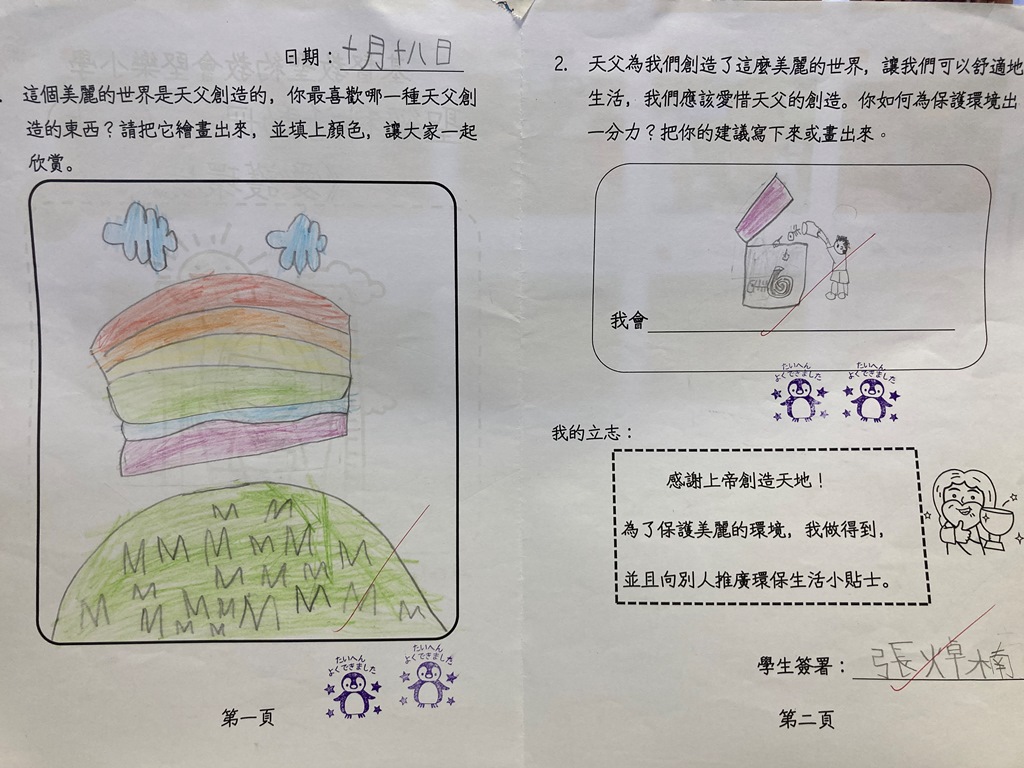 日期：十月十八日
這個美麗的世界是天父創造的，你最喜歡哪一種天父創
造的東西？請把它繪畫出來，並填上顏色，讓大家一起
欣賞。
たいへん
よくできました
たいへん
よくできました
第一頁
2. 天父為我們創造了這麼美麗的世界，讓我們可以舒適地
生活，我們應該愛惜天父的創造。你如何為保護環境出
一分力？把你的建議寫下來或畫出來。
我會
たいへん
よくできました
たいへん
よくできました
我的立志：
感謝上帝創造天地！
為了保護美麗的環境，我做得到，
並且向別人推廣環保生活小貼士。
學生簽署：張焯楠
第二頁